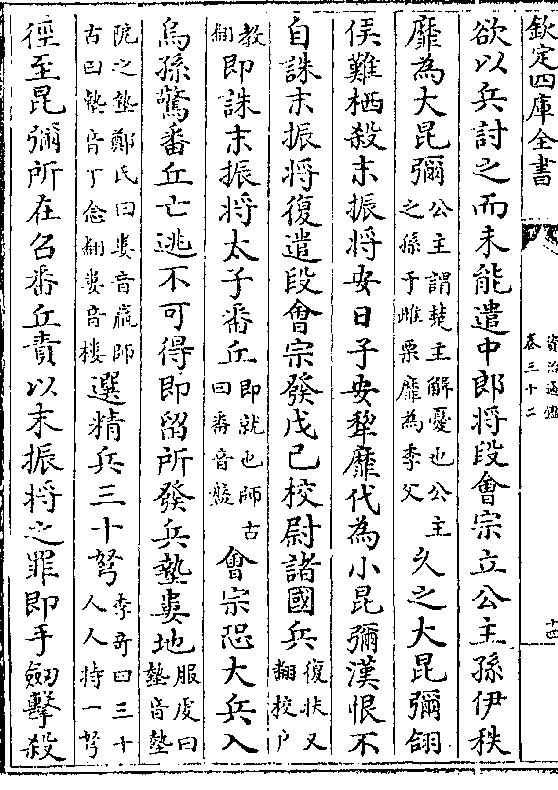 欽定四庫全書
資治通鑑
卷三十二
十四
欲以兵討之而未能遣中郎將段會宗立公主孫伊秩
靡為大昆彌公主謂楚主解憂也公主之孫于雌栗靡為季父久之大昆彌翎
侯難栖殺末振將安日子安犂靡代為小昆彌漢恨不
自誅末振將復遣段會宗發戊己校尉諸國兵復扶又翻校户
教翻即誅末振將太子番丘即就也師古曰番音盤會宗恐大兵入
烏孫驚番丘亡逃不可得即留所發兵墊婁地服虔曰墊音墊
阸之墊鄭氏曰婁音羸師古曰墊音丁念翻婁音樓選精兵三十弩李奇曰三十人人持一弩
徑至昆彌所在召番丘責以末振將之罪即手劒擊殺